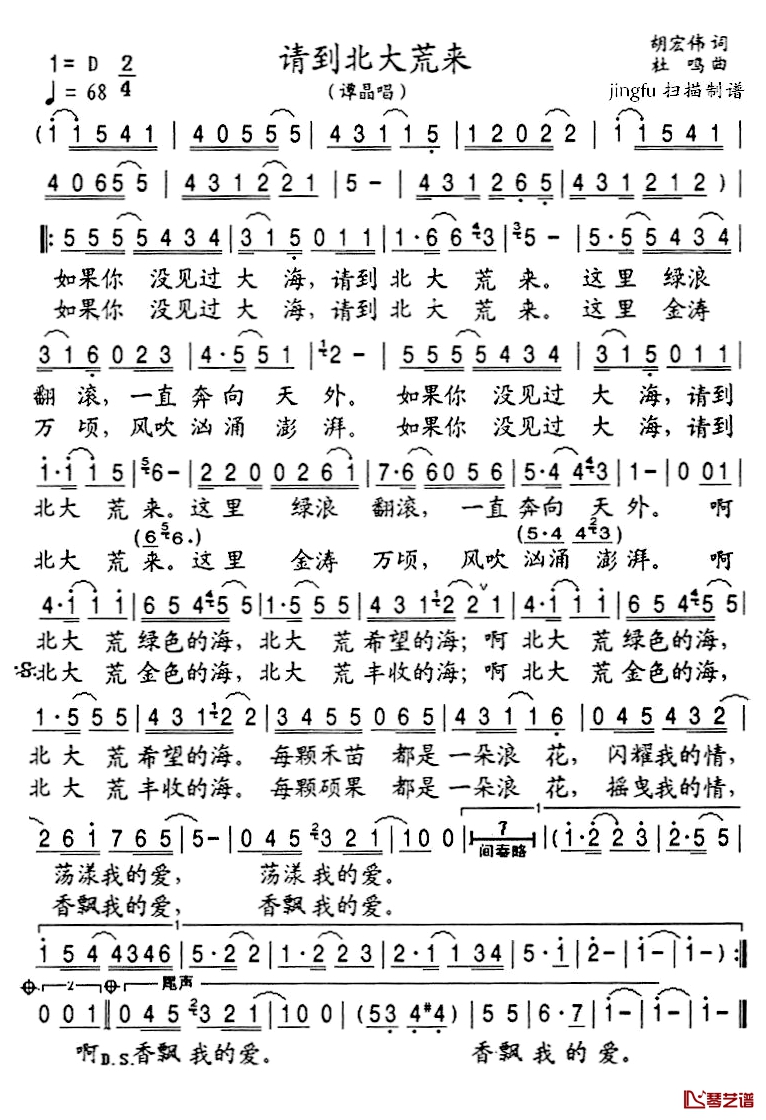 1= D 2/4
♩= 68
请到北大荒来
（谭晶唱）
胡宏伟 词
杜 鸣 曲
jingfu 扫描制谱
( i i 5 5 4 1 | 4 0 5 5 5 | 4 3 1 1 5 | 1 2 0 2 2 | i i 5 4 1 |
4 0 6 5 5 | 4 3 1 2 2 1 | 5 - | 4 3 1 2 6 5 | 4 3 1 2 1 2 ) |
‖: 5 5 5 5 4 3 4 | 3 1 5 0 1 1 | 1· 6 6 4 3 | 3 5 - | 5· 5 5 4 3 4 |
如果你 没见过 大 海，请到 北 大 荒 来。这里 绿浪
如果你 没见过 大 海，请到 北 大 荒 来。这里 金涛
3 1 6 0 2 3 | 4· 5 5 5 1 | 2 - | 5 5 5 5 4 3 4 | 3 1 5 0 1 1 |
翻 滚，一直 奔向 天 外。如果你 没见过 大 海，请到
万 顷，风吹 汹涌 澎 湃。如果你 没见过 大 海，请到
i· i i 5 | 6 - | 2 2 0 0 2 6 i | 7· 6 6 0 5 6 | 5· 4 4 3 | 1 - | 0 0 1 |
北大 荒 来。这 里 绿浪 翻滚，一直 奔向 天 外。 啊
(6 6·) (5·4 4 3)
北大 荒 来。这 里 金涛 万顷，风吹 汹涌 澎 湃。 啊
4· i i i | 6 5 4 5 5 | 1· 5 5 5 | 4 3 1 2 2 1 | 4· i i i | 6 5 4 5 5 |
北大 荒 绿色的海，北大 荒 希望的海；啊 北大 荒 绿色的海，
北大 荒 金色的海，北大 荒 丰收的海；啊 北大 荒 金色的海，
1· 5 5 5 | 4 3 1 2 2 | 3 4 5 5 0 6 5 | 4 3 1 1 6 | 0 4 5 4 3 2 |
北 大 荒 希望的海。每颗禾苗 都是 一朵浪 花， 闪耀我的情，
北 大 荒 丰收的海。每颗硕果 都是 一朵浪 花， 摇曳我的情，
2 6 i 7 6 5 | 5 - | 0 4 5 3 2 1 | 1 0 0 | 7 | ( i· 2 2 3 | 2· 5 5 |
间奏略
1
荡漾我的爱， 荡漾 我的 爱。
香飘我的爱， 香飘 我的 爱。
1
i 5 4 4 3 4 6 | 5· 2 2 | 1· 2 2 3 | 2· 1 1 3 4 | 5· i | 2 - | i - ) :‖
2 尾声
0 0 1 ‖ 0 4 5 3 2 1 | 1 0 0 | (5 3 4 #4) | 5 5 | 6· 7 | i - | i - | i - ‖
啊 D.S. 香飘 我的爱。 香飘 我 的 爱。
琴艺谱